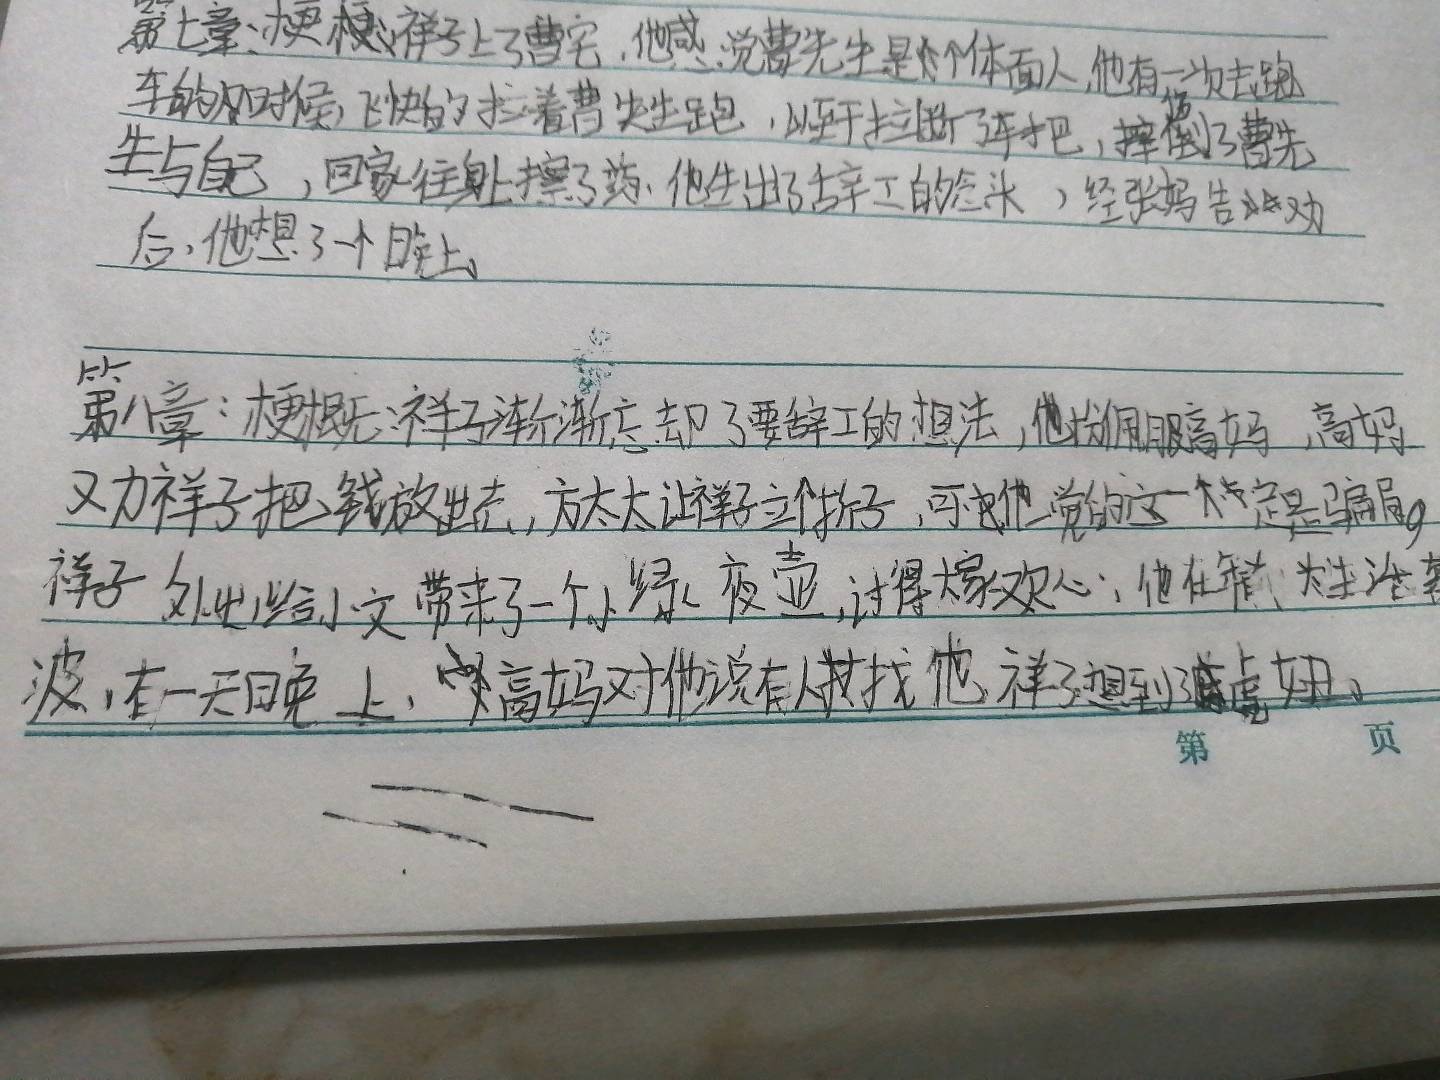 第七章：梗概：祥子上了曹宅，他感觉曹先生是个体面人，他有一次去跑
车的时候，飞快的拉着曹先生跑，以至于拉断了车把，摔倒了曹先
生与自己，回家往身上擦了药，他生出了辞工的念头，经张妈告劝
后，他想了一个晚上。
第八章：梗概：祥子渐渐忘却了要辞工的想法，他佩服高妈，高妈
又力祥子把钱放出去，方太太让祥子立个折子，可他觉的这一定是骗局。
祥子外出给小文带来了一个小绿夜壶，讨得大家欢心；他在年前为生活奔
波，有一天晚上，高妈对他说有人找他，祥子想到了虎妞。
第 页